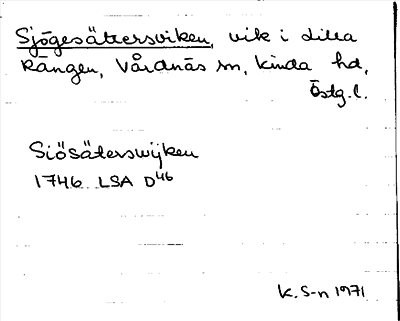 Sjögesättersviken, vik i Lilla
Rängen, Vårdnäs sn, Kinda hd,
Östg.l.
Siösäterswijken
1746 LSA D46
K. S-n 1971